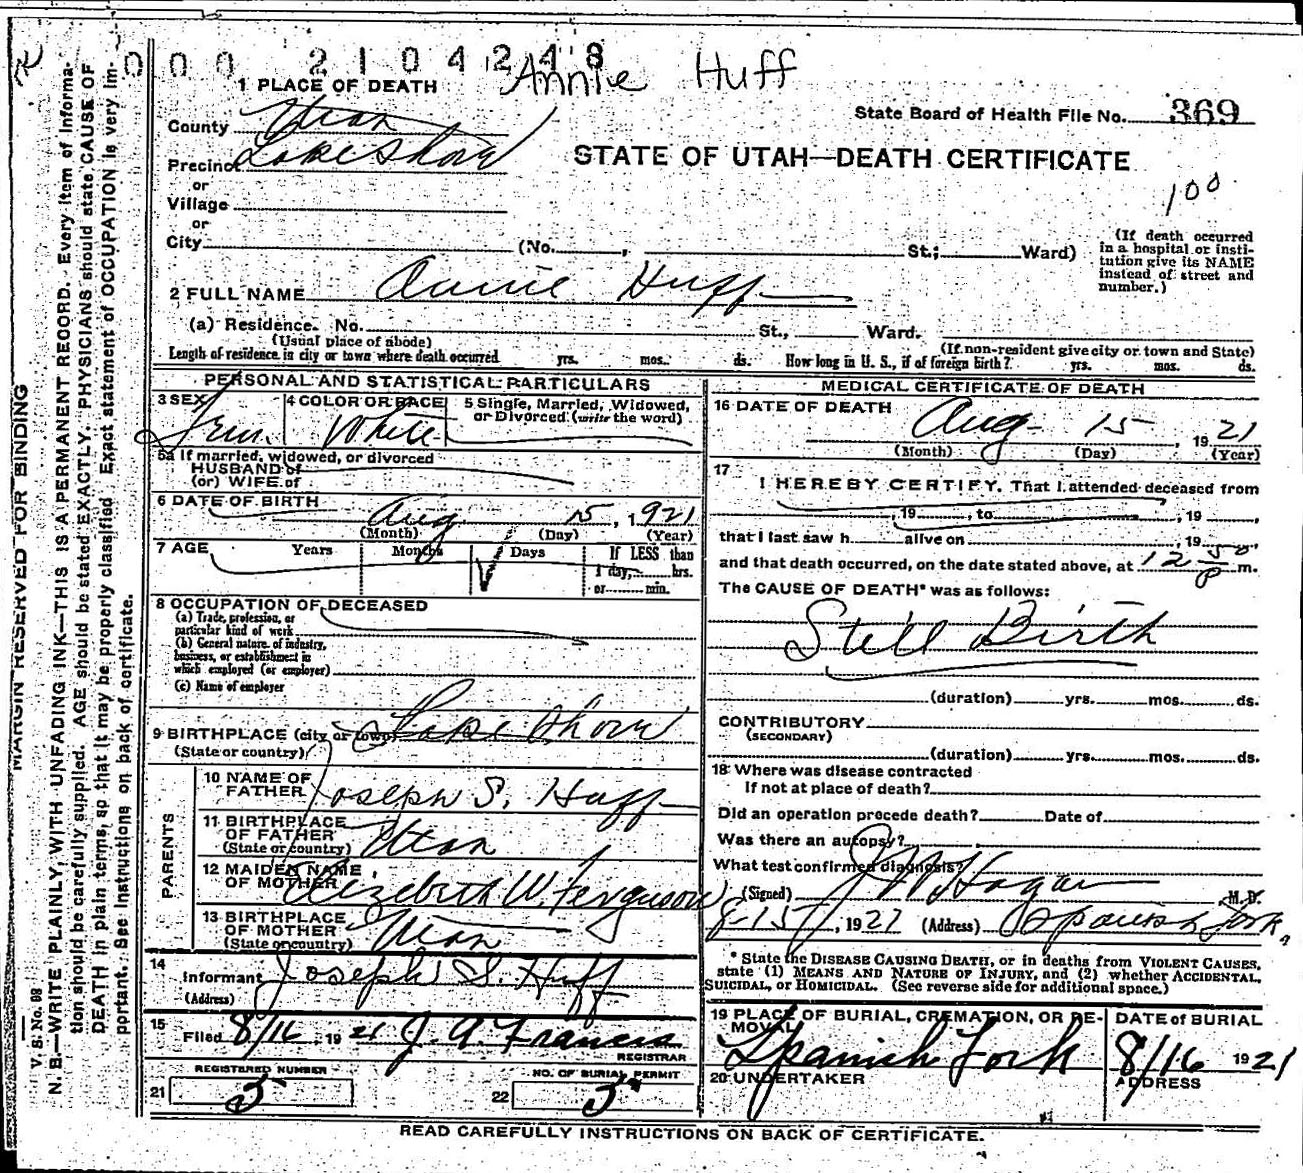 0 0 0 2 1 0 4 2 4 8
Annie Huff
1 PLACE OF DEATH
State Board of Health File No. 369
County Utah
Precinct Lakeshore
STATE OF UTAH—DEATH CERTIFICATE
100
or
Village
or
City (No. , St.; Ward)
(If death occurred in a hospital or insti-
tution give its NAME instead of street and number.)
2 FULL NAME Annie Huff
(a) Residence. No. St., Ward.
(Usual place of abode) (If non-resident give city or town and State)
Length of residence in city or town where death occurred yrs. mos. ds. How long in U. S., if of foreign birth? yrs. mos. ds.
PERSONAL AND STATISTICAL PARTICULARS
3 SEX Fem.
4 COLOR OR RACE White
5 Single, Married, Widowed,
or Divorced (write the word)
5a If married, widowed, or divorced
HUSBAND of
(or) WIFE of
6 DATE OF BIRTH Aug 15, 1921
(Month) (Day) (Year)
7 AGE Years Months Days If LESS than
1 day, hrs.
or min.
8 OCCUPATION OF DECEASED
(a) Trade, profession, or
particular kind of work
(b) General nature of industry,
business, or establishment in
which employed (or employer)
(c) Name of employer
9 BIRTHPLACE (city or town) Lake Shore
(State or country)
PARENTS
10 NAME OF
FATHER Joseph S. Huff
11 BIRTHPLACE
OF FATHER
(State or country) Utah
12 MAIDEN NAME
OF MOTHER Elizebeth W. Ferguson
13 BIRTHPLACE
OF MOTHER
(State or country) Utah
14
Informant Joseph S. Huff
(Address)
15
Filed 8/16 1921 J. A. Francis
REGISTRAR
REGISTERED NUMBER
21 5
NO. OF BURIAL PERMIT
22 5
MEDICAL CERTIFICATE OF DEATH
16 DATE OF DEATH Aug 15, 1921
(Month) (Day) (Year)
17
I HEREBY CERTIFY, That I attended deceased from
, 19 , to , 19 ,
that I last saw h alive on , 19
and that death occurred, on the date stated above, at 12 50 P m.
The CAUSE OF DEATH* was as follows:
Still Birth
(duration) yrs. mos. ds.
CONTRIBUTORY
(SECONDARY)
(duration) yrs. mos. ds.
18 Where was disease contracted
If not at place of death?
Did an operation precede death? Date of
Was there an autopsy?
What test confirmed diagnosis?
(Signed) J W Hagan M. D.
8-15, 1921 (Address) Spanish Fork,
* State the DISEASE CAUSING DEATH, or in deaths from VIOLENT CAUSES,
state (1) MEANS AND NATURE OF INJURY, and (2) whether ACCIDENTAL,
SUICIDAL, or HOMICIDAL. (See reverse side for additional space.)
19 PLACE OF BURIAL, CREMATION, OR RE-
MOVAL
Spanish Fork
DATE of BURIAL
8/16 1921
20 UNDERTAKER
ADDRESS
READ CAREFULLY INSTRUCTIONS ON BACK OF CERTIFICATE.
MARGIN RESERVED FOR BINDING
V. S. No. 98
N. B.—WRITE PLAINLY, WITH UNFADING INK—THIS IS A PERMANENT RECORD. Every item of Informa-
tion should be carefully supplied. AGE should be stated EXACTLY. PHYSICIANS should state CAUSE OF
DEATH in plain terms, so that it may be properly classified. Exact statement of OCCUPATION is very im-
portant. See Instructions on back of certificate.